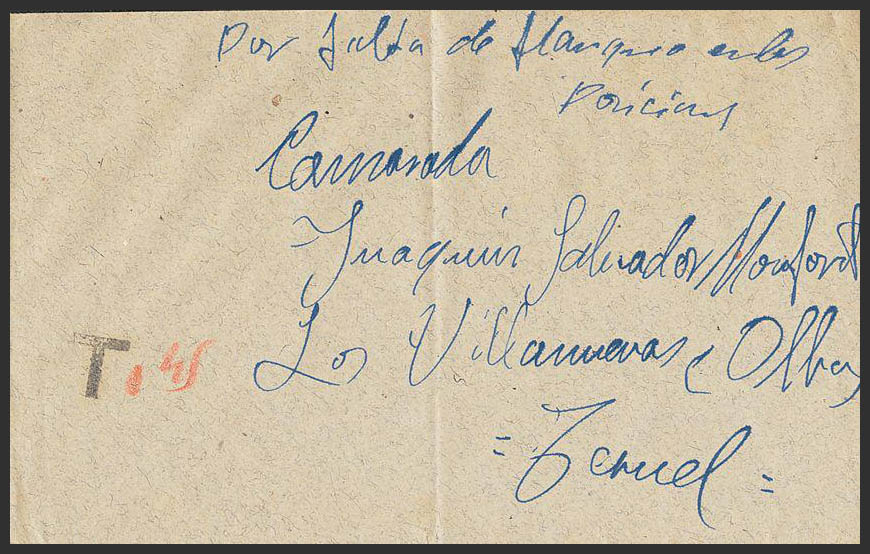 Por falta de flanqueo en las
Posiciones
Camarada
Juaquin Salvador Monfort
Los Villanuevas (Olba)
= Teruel =
T 0'45